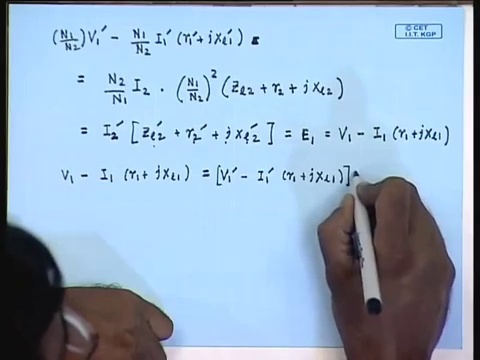 © CET
I.I.T. KGP
(N1/N2) V1′ − N1/N2 I1′ (r1′ + jxl1′)
= N2/N1 I2 · (N1/N2)² (Zl2 + r2 + jxl2)
= I2′ [Zl2′ + r2′ + jxl2′] = E1 = V1 − I1 (r1 + jxl1)
V1 − I1 (r1 + jxl1) = [V1′ − I1′ (r1 + jxl1)]